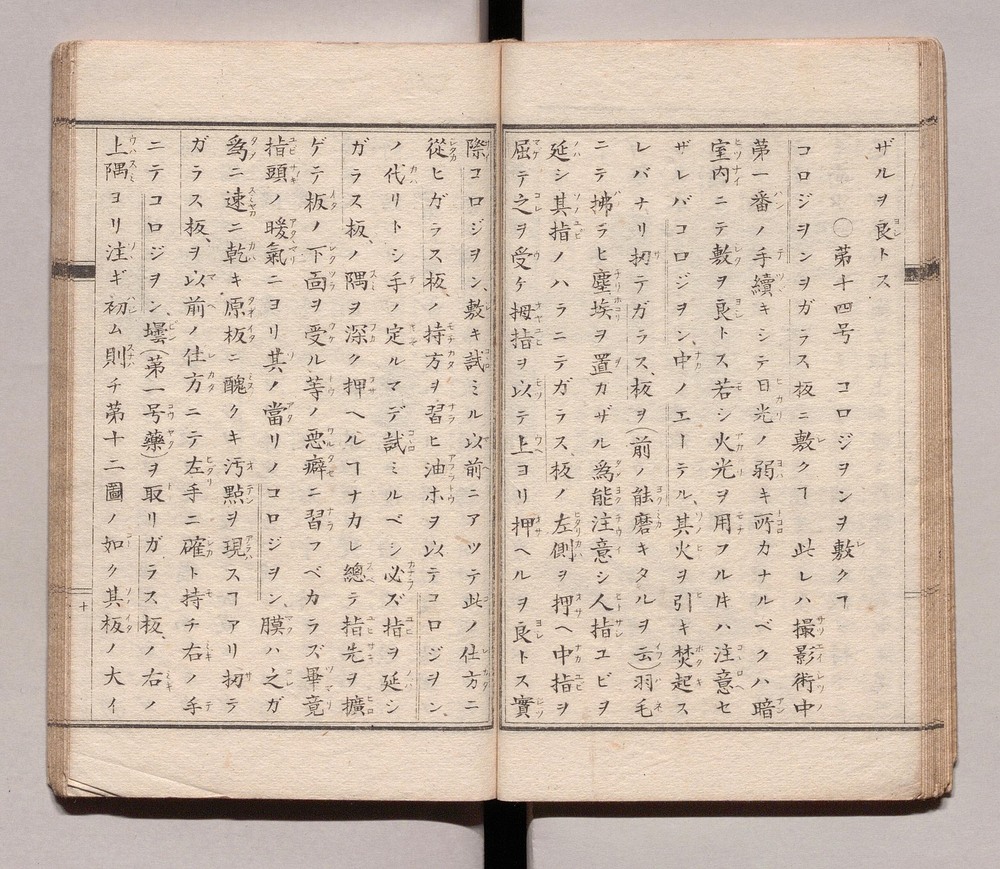 ザルヲ良トス
〇第十四号 コロジヲンヲ敷クヿ
コロジヲンヲガラス板ニ敷クヿ 此レハ撮影術中ノ
第一番ノ手續キシテ日光ノ弱キ所カナルベクハ暗
室内ニテ敷ヲ良トス若シ火光ヲ用フル𪜈ハ注意セ
ザレバコロジヲン、中ノエーテル、其火ヲ引キ焚起ス
レバナリ扨テガラス、板ヲ(前ノ能磨キタルヲ云)羽毛
ニテ拂ラヒ塵埃ヲ置カザル為能注意シ人指ユビヲ
延シ其指ノハラニテガラス、板ノ左側ヲ押ヘ中指ヲ
屈テ之ヲ受ケ拇指ヲ以テ上ヨリ押ヘルヲ良トス實
際コロジヲン、敷キ試ミル以前ニアツテ此ノ仕方ニ
從ヒガラス板、ノ持方ヲ習ヒ油ホヲ以テコロジヲン、
ノ代リトシ手ノ定ルマデ試ミルベシ必ズ指ヲ延シ
ガラス板、ノ隅ヲ深ク押ヘルヿナカレ總テ指先ヲ擴
ゲテ板ノ下面ヲ受ル等ノ悪癖ニ習フベカラズ畢竟
指頭ノ暖氣ニヨリ其ノ當リノコロジヲン、膜ハ之ガ
為ニ速ニ乾キ原板ニ醜クキ汚點ヲ現スヿアリ扨テ
ガラス板、ヲ以前ノ仕方ニテ左手ニ確ト持チ右ノ手
ニテコロジヲン、壜(第一号藥)ヲ取リガラス板、ノ右ノ
上隅ヨリ注ギ初ム則チ第十二圖ノ如ク其板ノ大イ
十